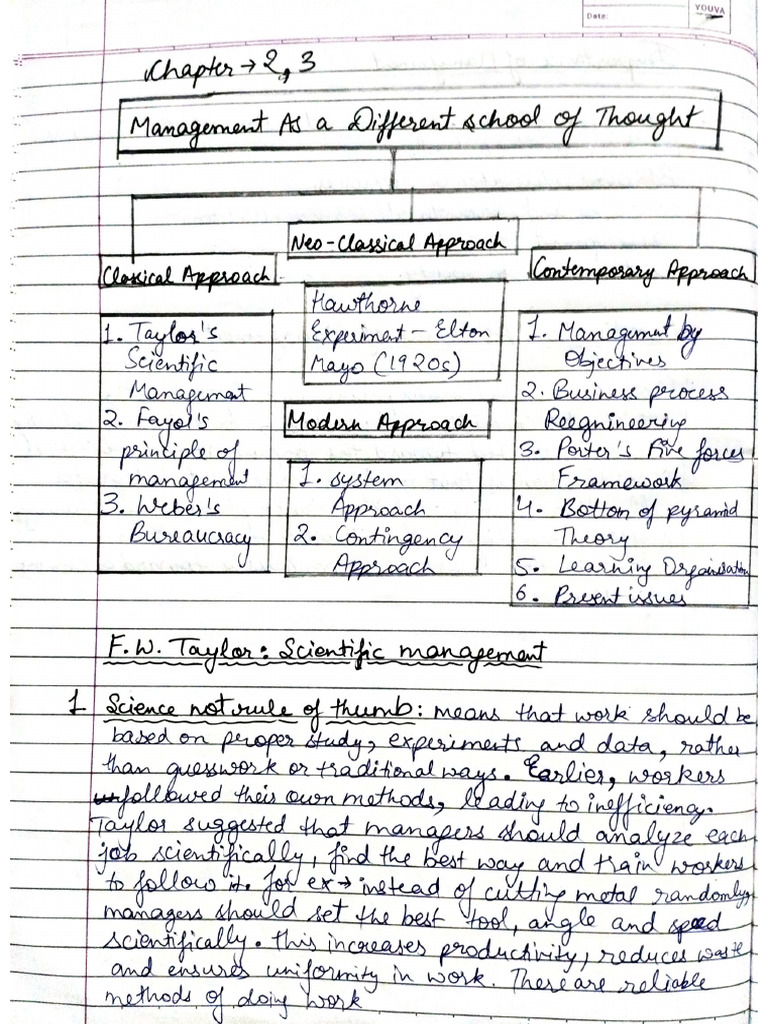 Date:
YOUVA
Chapter → 2, 3
Management As a Different school of Thought
Neo-Classical Approach
Classical Approach
Contemporary Approach
1. Taylor's
Scientific
Management
2. Fayol's
principle of
management
3. Weber's
Bureaucracy
Hawthorne
Experiment - Elton
Mayo (1920s)
Modern Approach
1. system
Approach
2. Contingency
Approach
1. Management by
Objectives
2. Business process
Reegnineering
3. Porter's Five forces
Framework
4. Bottom of pyramid
Theory
5. Learning Organisation
6. Present issues
F. W. Taylor: Scientific management
1 Science not rule of thumb: means that work should be
based on proper study, experiments and data, rather
than guesswork or traditional ways. Earlier, workers
followed their own methods, leading to inefficiency.
Taylor suggested that managers should analyze each
job scientifically, find the best way and train workers
to follow it. for ex → instead of cutting metal randomly,
managers should set the best tool, angle and speed
scientifically. this increases productivity, reduces waste
and ensures uniformity in work. These are reliable
methods of doing work